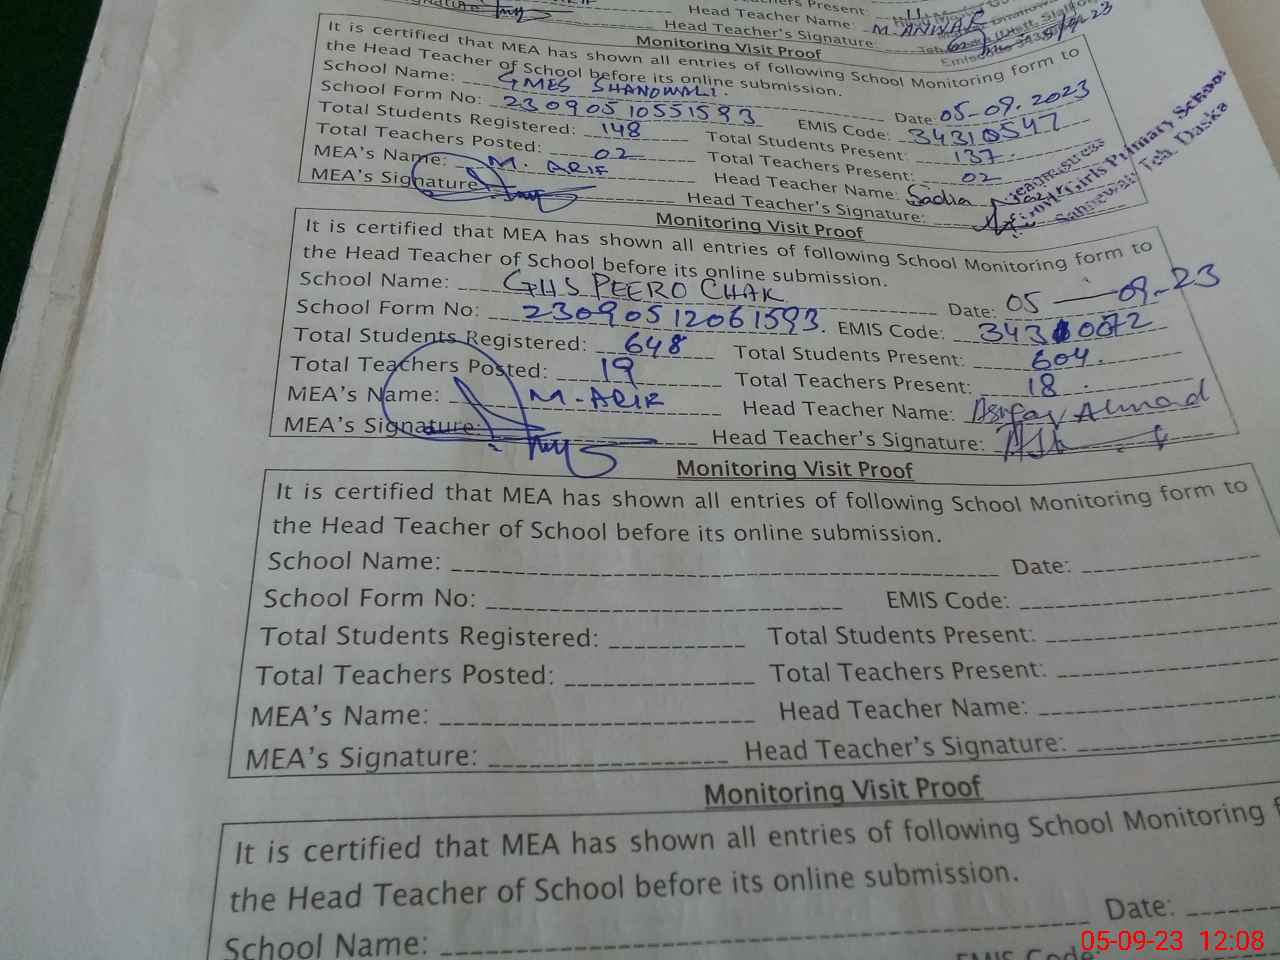 Head Teacher Name: M. ANWAR
Head Teacher's Signature:
Monitoring Visit Proof
It is certified that MEA has shown all entries of following School Monitoring form to
the Head Teacher of School before its online submission.
School Name: GMES SHANDWALI. Date: 05-09-2023
School Form No: 23090510551593 EMIS Code: 34310547
Total Students Registered: 148 Total Students Present: 137.
Total Teachers Posted: 02 Total Teachers Present: 02
MEA's Name: M. ARIF Head Teacher Name: Sadia
MEA's Signature: Head Teacher's Signature:
Headmistress
Govt Girls Primary School
Teh. Daska
Monitoring Visit Proof
It is certified that MEA has shown all entries of following School Monitoring form to
the Head Teacher of School before its online submission.
School Name: GHS PEERO CHAK Date: 05-09-23
School Form No: 23090512061593. EMIS Code: 34310072
Total Students Registered: 648 Total Students Present: 604.
Total Teachers Posted: 19 Total Teachers Present: 18.
MEA's Name: M-ARIF Head Teacher Name: Ahmad
MEA's Signature: Head Teacher's Signature:
Monitoring Visit Proof
It is certified that MEA has shown all entries of following School Monitoring form to
the Head Teacher of School before its online submission.
School Name: Date:
School Form No: EMIS Code:
Total Students Registered: Total Students Present:
Total Teachers Posted: Total Teachers Present:
MEA's Name: Head Teacher Name:
MEA's Signature: Head Teacher's Signature:
Monitoring Visit Proof
It is certified that MEA has shown all entries of following School Monitoring
the Head Teacher of School before its online submission.
School Name: Date:
EMIS Code:
05-09-23 12:08